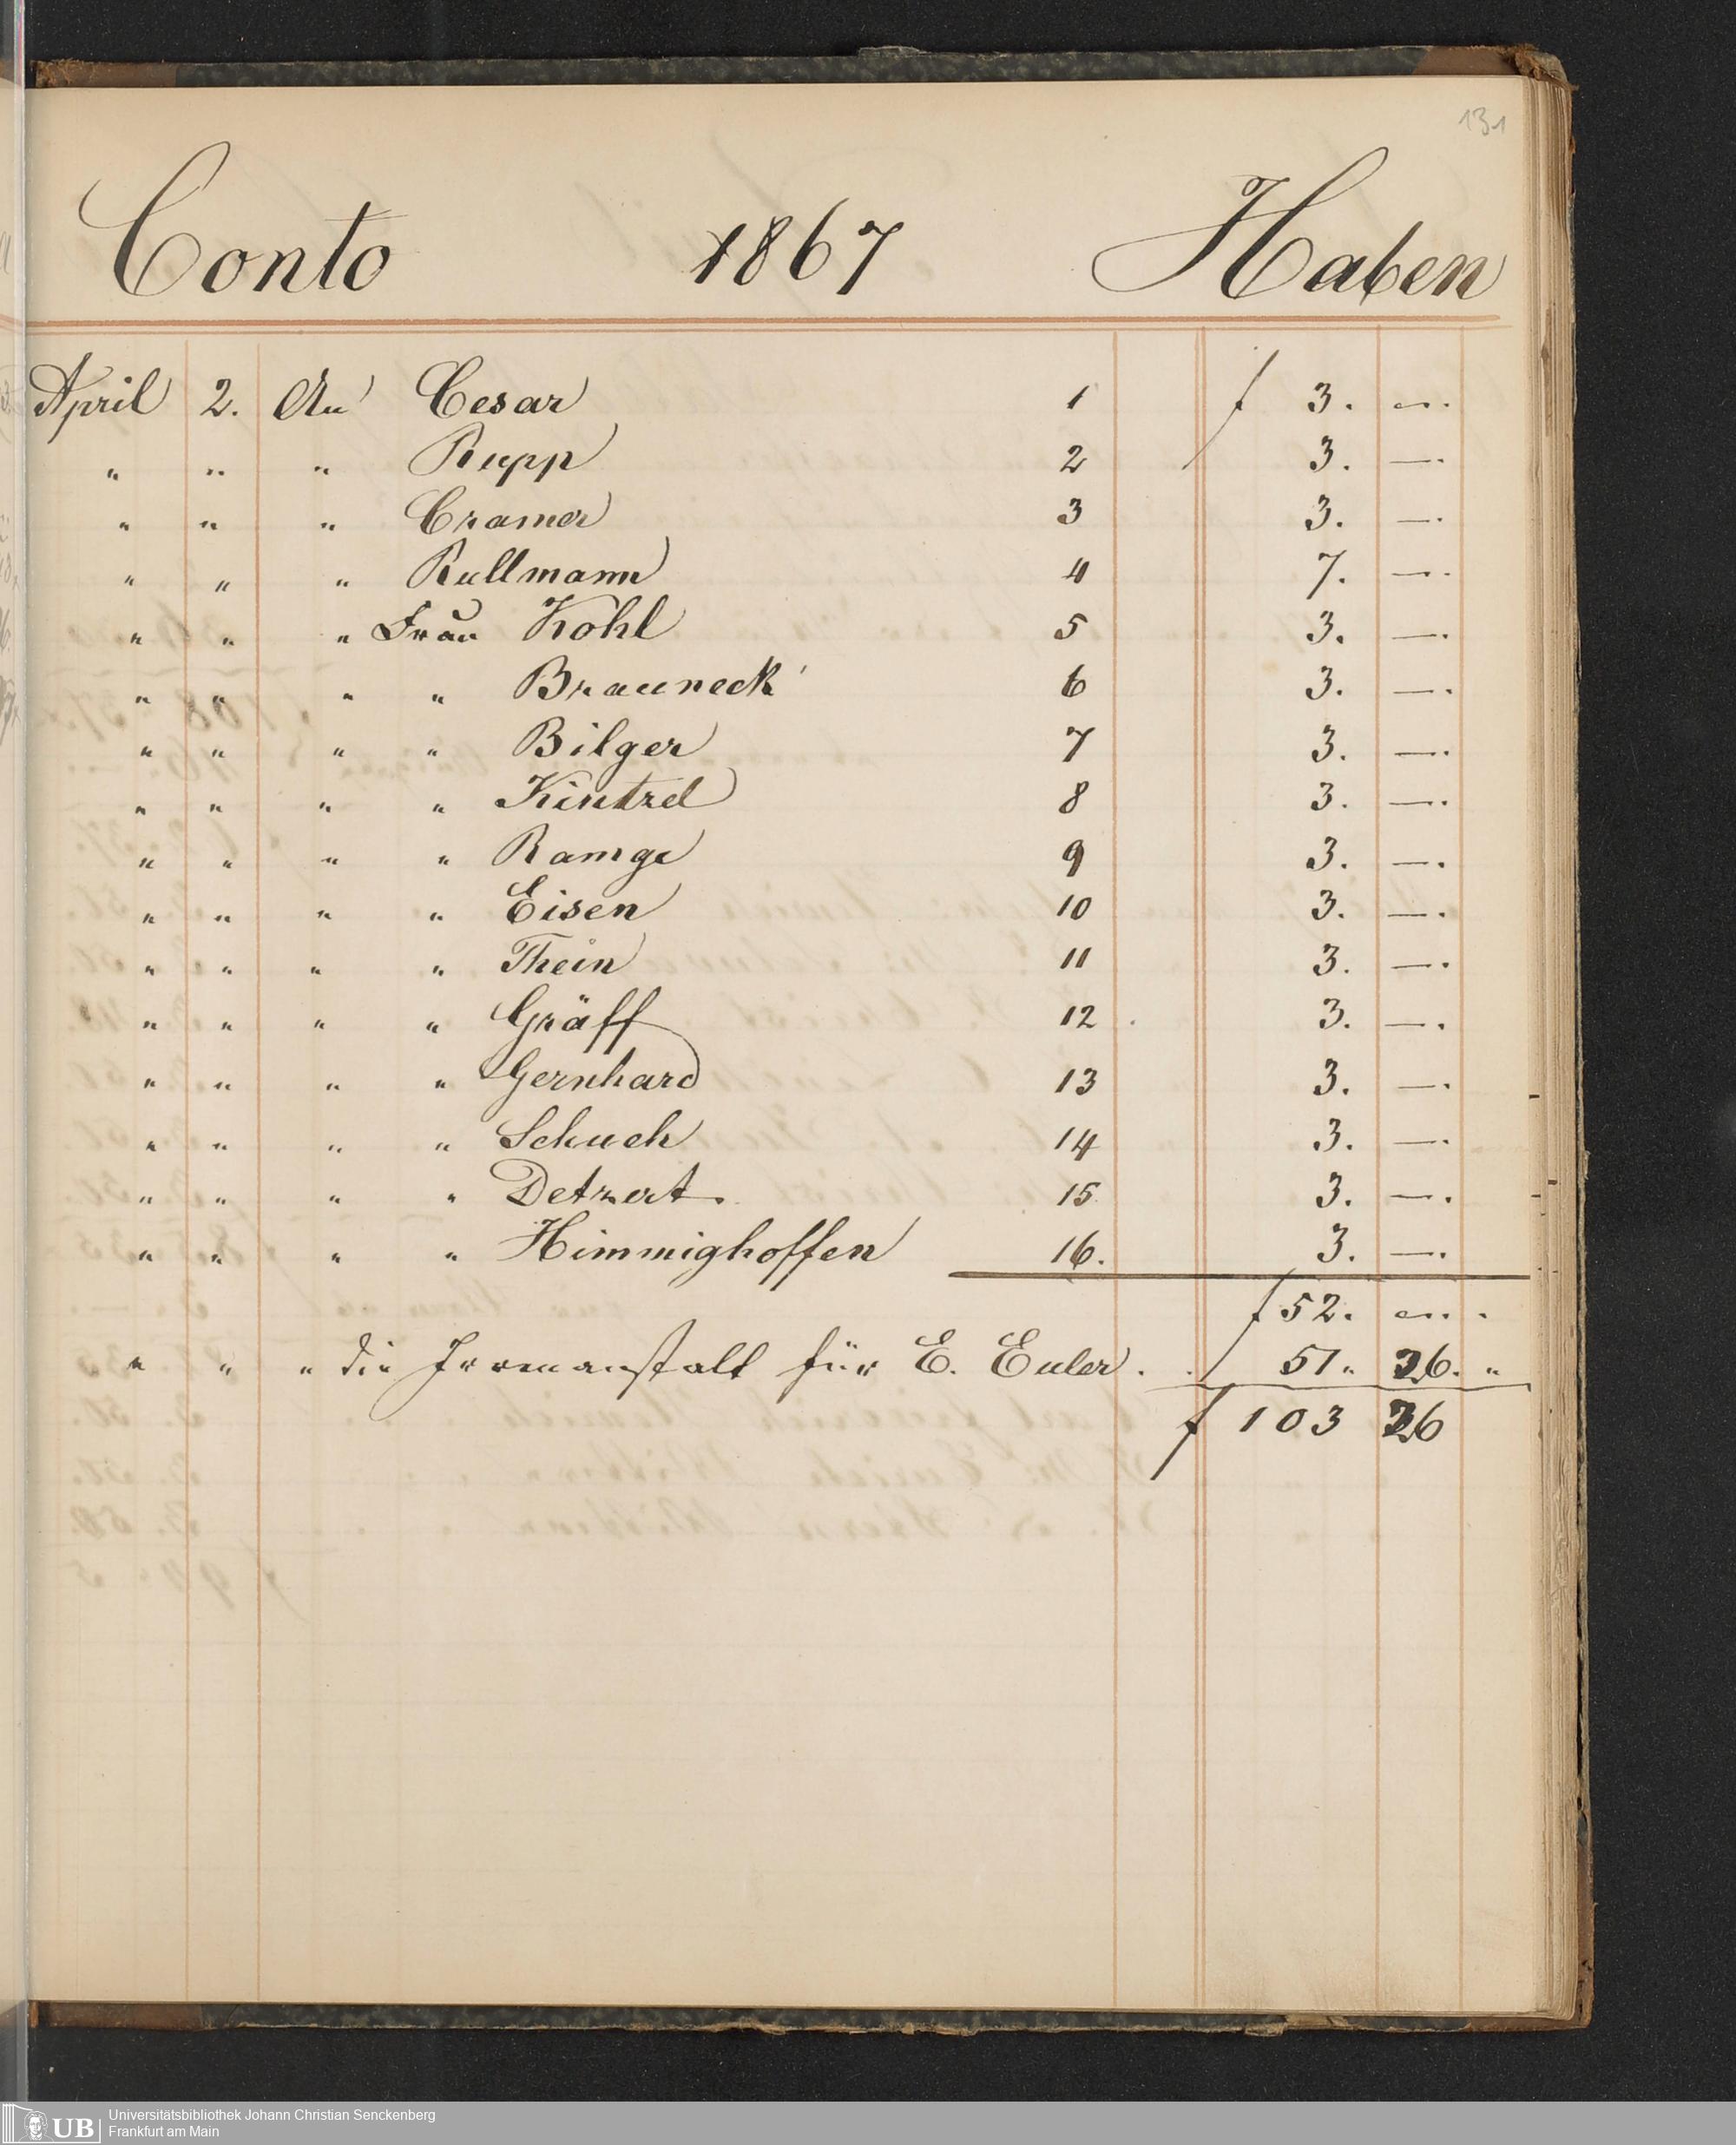 131
Conto 1867 Haben
April 2. An Cesar 1 f 3. —.
" " " Rupp 2 3. —.
" " " Cramer 3 3. —.
" " " Rullmann 4 7. —.
" " " Frau Kohl 5 3. —.
" " " " Brauneck 6 3. —.
" " " " Bilger 7 3. —.
" " " " Kintzel 8 3. —.
" " " " Ramge 9 3. —.
" " " " Eisen 10 3. —.
" " " " Thein 11 3. —.
" " " " Gräff 12 3. —.
" " " " Gernhard 13 3. —.
" " " " Schuch 14 3. —.
" " " " Detzert. 15 3. —.
" " " " Himmighoffen 16. 3. —.
f 52. —.
" " " die Irrenanstalt für E. Euler. 51. 26. "
f 103 26
UB Universitätsbibliothek Johann Christian Senckenberg
Frankfurt am Main